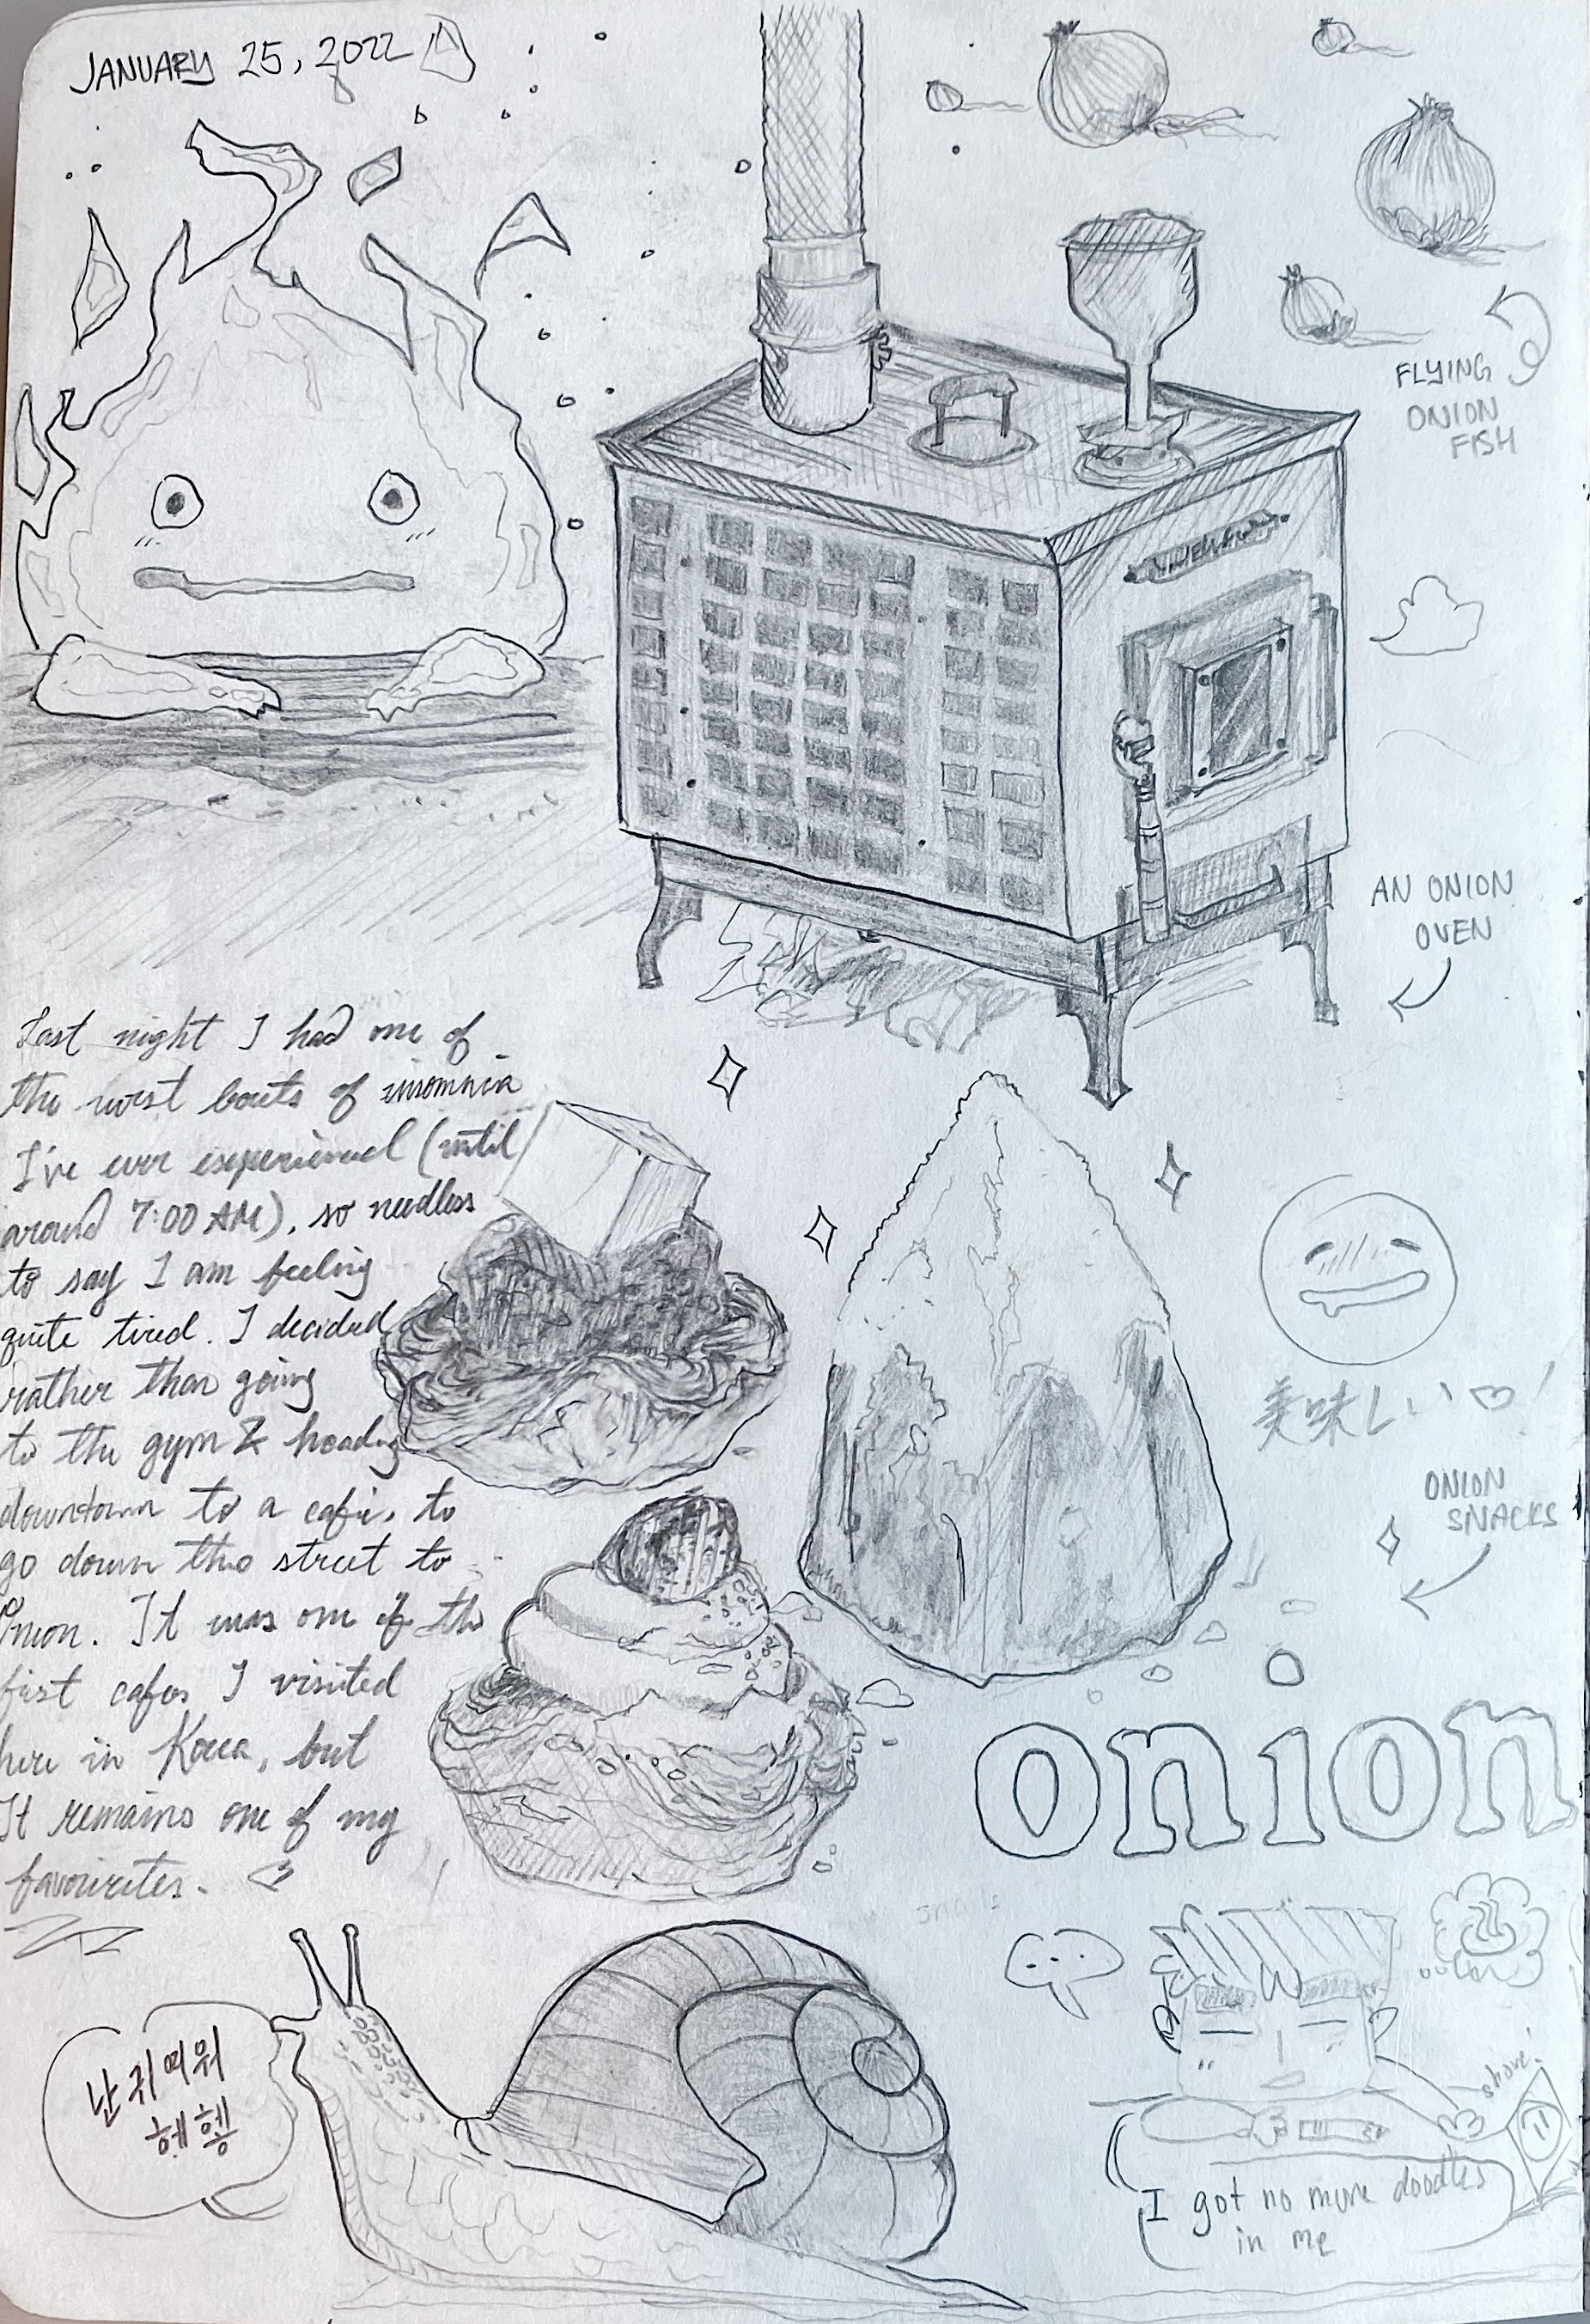 JANUARY 25, 2022
FLYING
ONION
FISH
AN ONION
OVEN
Last night I had one of
the worst bouts of insomnia
I've ever experienced (until
around 7:00 AM), so needless
to say I am feeling
quite tired. I decided
rather than going
to the gym & heading
downtown to a café, to
go down the street to
Onion. It was one of the
first cafes I visited
here in Korea, but
It remains one of my
favourites.
美味しい
ONION
SNACKS
onion
난 귀여워
헤헹
shove!
I got no more doodles
in me